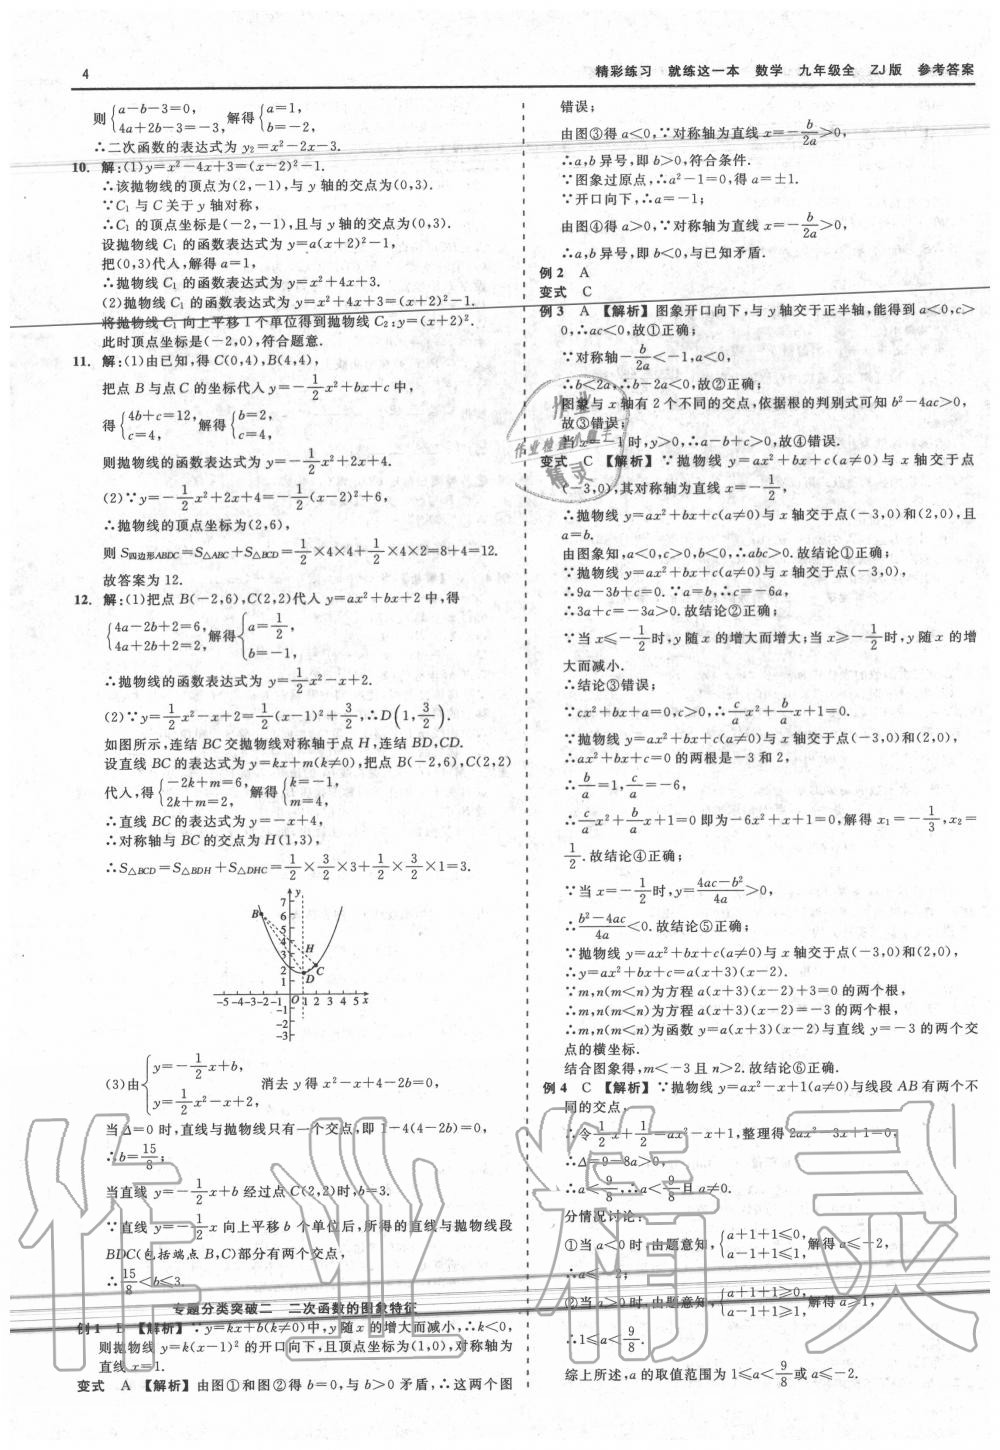 4
精彩练习 就练这一本 数学 九年级全 ZJ版 参考答案
则{a-b-3=0, 4a+2b-3=-3, 解得{a=1, b=-2,
∴二次函数的表达式为 y₂=x²-2x-3.
10. 解:(1)y=x²-4x+3=(x-2)²-1.
∴该抛物线的顶点为(2,-1),与 y 轴的交点为(0,3).
∵C₁ 与 C 关于 y 轴对称,
∴C₁ 的顶点坐标是(-2,-1),且与 y 轴的交点为(0,3).
设抛物线 C₁ 的函数表达式为 y=a(x+2)²-1,
把(0,3)代入,解得 a=1,
∴抛物线 C₁ 的函数表达式为 y=x²+4x+3.
(2)抛物线 C₁ 的函数表达式为 y=x²+4x+3=(x+2)²-1.
将抛物线 C₁ 向上平移 1 个单位得到抛物线 C₂:y=(x+2)².
此时顶点坐标是(-2,0),符合题意.
11. 解:(1)由已知,得 C(0,4),B(4,4),
把点 B 与点 C 的坐标代入 y=-1/2x²+bx+c 中,
得{4b+c=12, c=4, 解得{b=2, c=4,
则抛物线的函数表达式为 y=-1/2x²+2x+4.
(2)∵y=-1/2x²+2x+4=-1/2(x-2)²+6,
∴抛物线的顶点坐标为(2,6),
则 S四边形ABDC=S△ABC+S△BCD=1/2×4×4+1/2×4×2=8+4=12.
故答案为 12.
12. 解:(1)把点 B(-2,6),C(2,2)代入 y=ax²+bx+2 中,得
{4a-2b+2=6, 4a+2b+2=2, 解得{a=1/2, b=-1,
∴抛物线的函数表达式为 y=1/2x²-x+2.
(2)∵y=1/2x²-x+2=1/2(x-1)²+3/2,∴D(1,3/2).
如图所示,连结 BC 交抛物线对称轴于点 H,连结 BD,CD.
设直线 BC 的表达式为 y=kx+m(k≠0),把点 B(-2,6),C(2,2)
代入,得{-2k+m=6, 2k+m=2, 解得{k=-1, m=4,
∴直线 BC 的表达式为 y=-x+4,
∴对称轴与 BC 的交点为 H(1,3),
∴S△BCD=S△BDH+S△DHC=1/2×3/2×3+1/2×3/2×1=3.
y
7
B
6
5
4
3
H
2
C
1
D
-5-4-3-2-1 O 1 2 3 4 5 x
-1
-2
-3
(3)由{y=-1/2x+b, y=1/2x²-x+2, 消去 y 得 x²-x+4-2b=0,
当Δ=0 时,直线与抛物线只有一个交点,即 1-4(4-2b)=0,
∴b=15/8;
当直线 y=-1/2x+b 经过点 C(2,2)时,b=3.
∵直线 y=-1/2x 向上平移 b 个单位后,所得的直线与抛物线段
BDC(包括端点 B,C)部分有两个交点,
∴15/8<b≤3.
专题分类突破二 二次函数的图象特征
例1 B 【解析】∵y=kx+b(k≠0)中,y 随 x 的增大而减小,∴k<0,
则抛物线 y=k(x-1)² 的开口向下,且顶点坐标为(1,0),对称轴为
直线 x=1.
变式 A 【解析】由图①和图②得 b=0,与 b>0 矛盾,∴这两个图
错误;
由图③得 a<0,∵对称轴为直线 x=-b/2a>0,
∴a,b 异号,即 b>0,符合条件.
∵图象过原点,∴a²-1=0,得 a=±1.
∵开口向下,∴a=-1;
由图④得 a>0,∵对称轴为直线 x=-b/2a>0,
∴a,b 异号,即 b<0,与已知矛盾.
例2 A
变式 C
例3 A 【解析】图象开口向下,与 y 轴交于正半轴,能得到 a<0,c>
0,∴ac<0,故①正确;
∵对称轴-b/2a<-1,a<0,
∴b<2a,∴b-2a<0,故②正确;
图象与 x 轴有 2 个不同的交点,依据根的判别式可知 b²-4ac>0,
故③错误;
当 x=-1 时,y>0,∴a-b+c>0,故④错误.
变式 C 【解析】∵抛物线 y=ax²+bx+c(a≠0)与 x 轴交于点
(-3,0),其对称轴为直线 x=-1/2,
∴抛物线 y=ax²+bx+c(a≠0)与 x 轴交于点(-3,0)和(2,0),且
a=b.
由图象知,a<0,c>0,b<0,∴abc>0.故结论①正确;
∵抛物线 y=ax²+bx+c(a≠0)与 x 轴交于点(-3,0),
∴9a-3b+c=0.∵a=b,∴c=-6a,
∴3a+c=-3a>0.故结论②正确;
∵当 x≤-1/2时,y 随 x 的增大而增大;当 x≥-1/2时,y 随 x 的增
大而减小.
∴结论③错误;
∵cx²+bx+a=0,c>0,∴c/a x²+b/a x+1=0.
∵抛物线 y=ax²+bx+c(a≠0)与 x 轴交于点(-3,0)和(2,0),
∴ax²+bx+c=0 的两根是-3 和 2,
∴b/a=1,c/a=-6,
∴c/a x²+b/a x+1=0 即为-6x²+x+1=0,解得 x₁=-1/3,x₂=
1/2.故结论④正确;
∵当 x=-1/2时,y=4ac-b²/4a>0,
∴b²-4ac/4a<0.故结论⑤正确;
∵抛物线 y=ax²+bx+c(a≠0)与 x 轴交于点(-3,0)和(2,0),
∴y=ax²+bx+c=a(x+3)(x-2).
∵m,n(m<n)为方程 a(x+3)(x-2)+3=0 的两个根,
∴m,n(m<n)为方程 a(x+3)(x-2)=-3 的两个根,
∴m,n(m<n)为函数 y=a(x+3)(x-2)与直线 y=-3 的两个交
点的横坐标.
结合图象得,m<-3 且 n>2.故结论⑥正确.
例4 C 【解析】∵抛物线 y=ax²-x+1(a≠0)与线段 AB 有两个不
同的交点,
∴令1/2x+1/2=ax²-x+1,整理得 2ax²-3x+1=0,
∴Δ=9-8a>0,
∴a<9/8,∴a<9/8且 a≠0.
分情况讨论:
①当 a<0 时,由题意知,{a+1+1≤0, a-1+1≤1, 解得 a≤-2,
∴a≤-2;
②当 a>0 时,由题意知,{a+1+1≥0, a-1+1≥1, 解得 a≥1,
∴1≤a<9/8.
综上所述,a 的取值范围为 1≤a<9/8或 a≤-2.
作业精灵